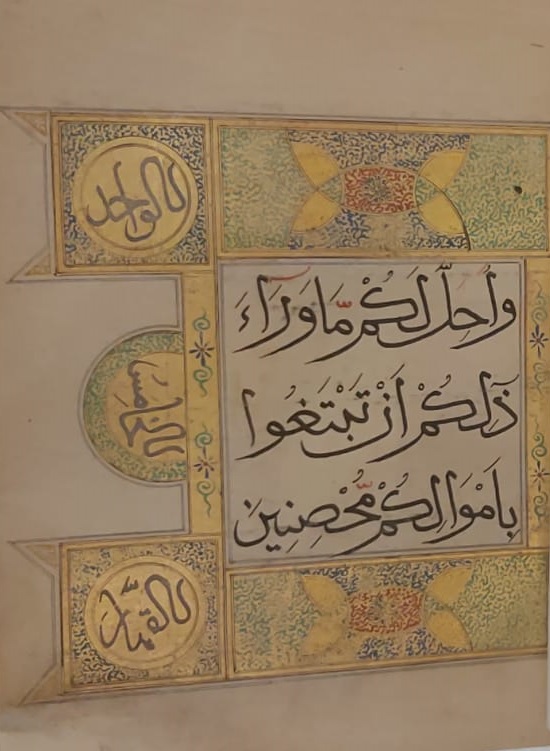 الواحد
وَاُحِلَّ لَكُمْ مَّا وَرَآءَ
ذٰلِكُمْ اَنْ تَبْتَغُوا
بِاَمْوَالِكُمْ مُّحْصِنِينَ
الخامس
القهار